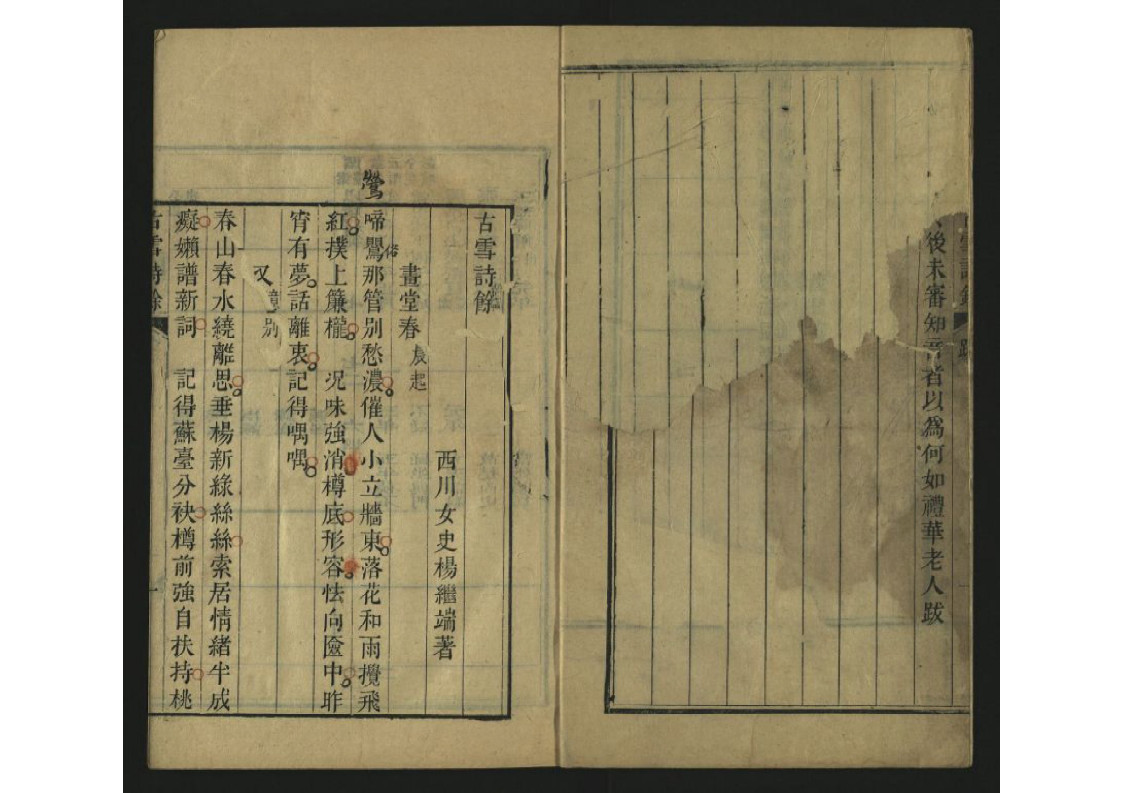 後未審知音者以為何如禮華老人跋
跋
古雪詩餘
西川女史楊繼端著
畫堂春 晨起
鶯
俗
啼鸎那管別愁濃催人小立牆東落花和雨攪飛
紅撲上簾櫳 況味強消樽底形容怯向匳中昨
宵有夢話離衷記得喁喁
又 憶別
春山春水繞離思垂楊新綠絲絲索居情緒半成
癡嬾譜新詞 記得蘇臺分袂樽前強自扶持桃
古雪詩餘
一